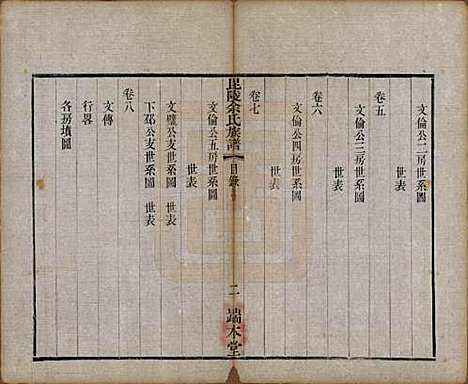 文倫公二房世系圖
世表
卷五
文倫公三房世系圖
世表
卷六
文倫公四房世系圖
世表
卷七
毘陵余氏族譜 目錄 二 端本堂
文倫公五房世系圖
世表
文璧公支世系圖 世表
下邳公支世系圖 世表
卷八
文傳
行畧
各房墳圖